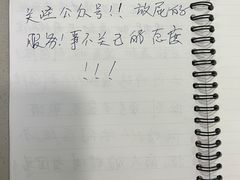 关这公众号!! 放屁的
服务! 事不关己的态度
!!!